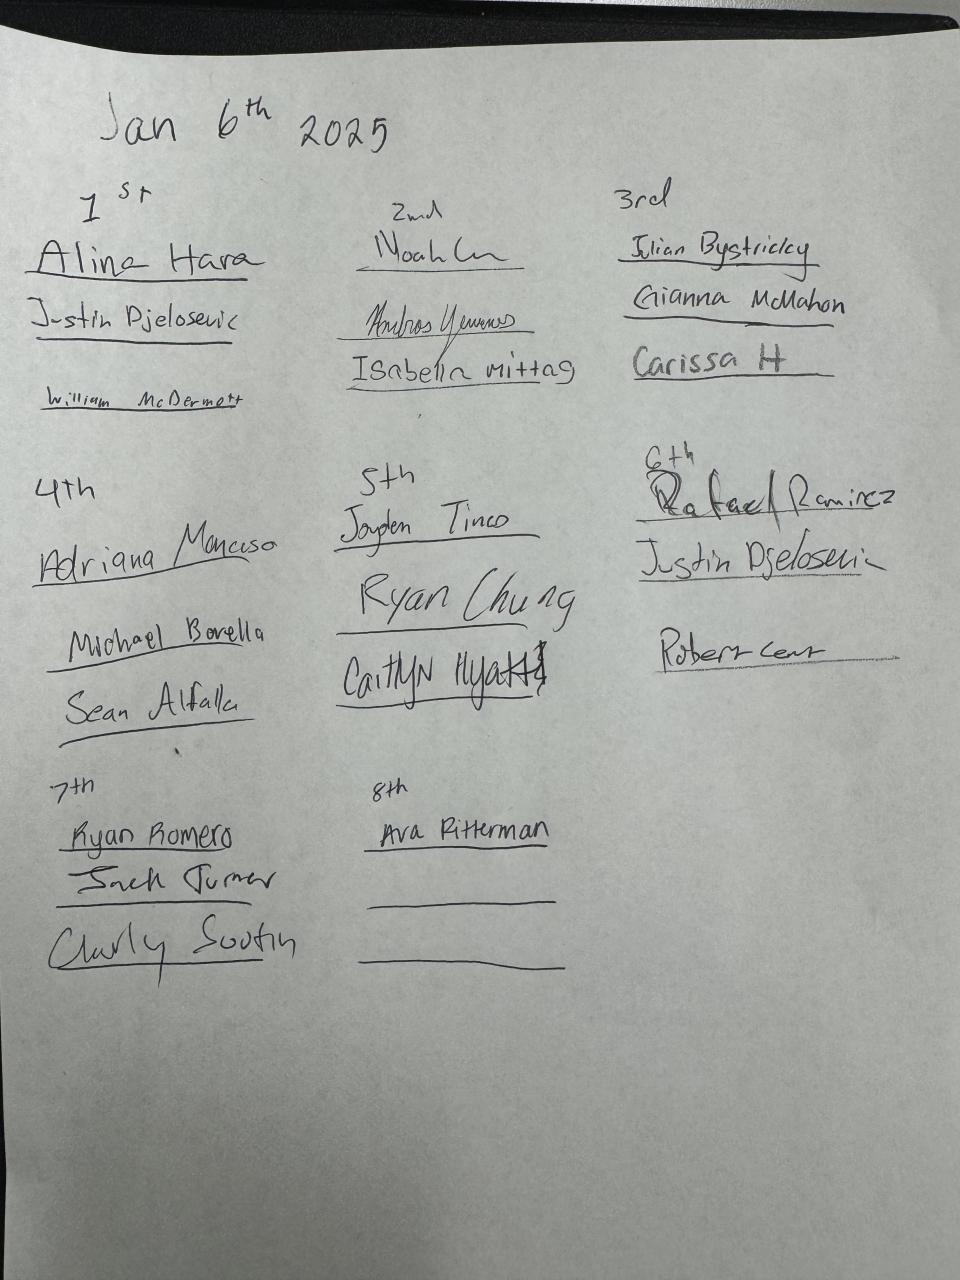 Jan 6th 2025
1st
Alina Hara
Justin Djelosevic
William McDermott
2nd
Noah
Isabella Mittag
3rd
Julian Bystricky
Gianna McMahon
Carissa H
4th
Adriana Mancuso
Michael Borella
Sean Alfalla
5th
Jayden Tinco
Ryan Chung
Caitlyn Hyatt
6th
Rafael Ramirez
Justin Djelosevic
Robert
7th
Ryan Romero
Jack Turner
8th
Ava Ritterman